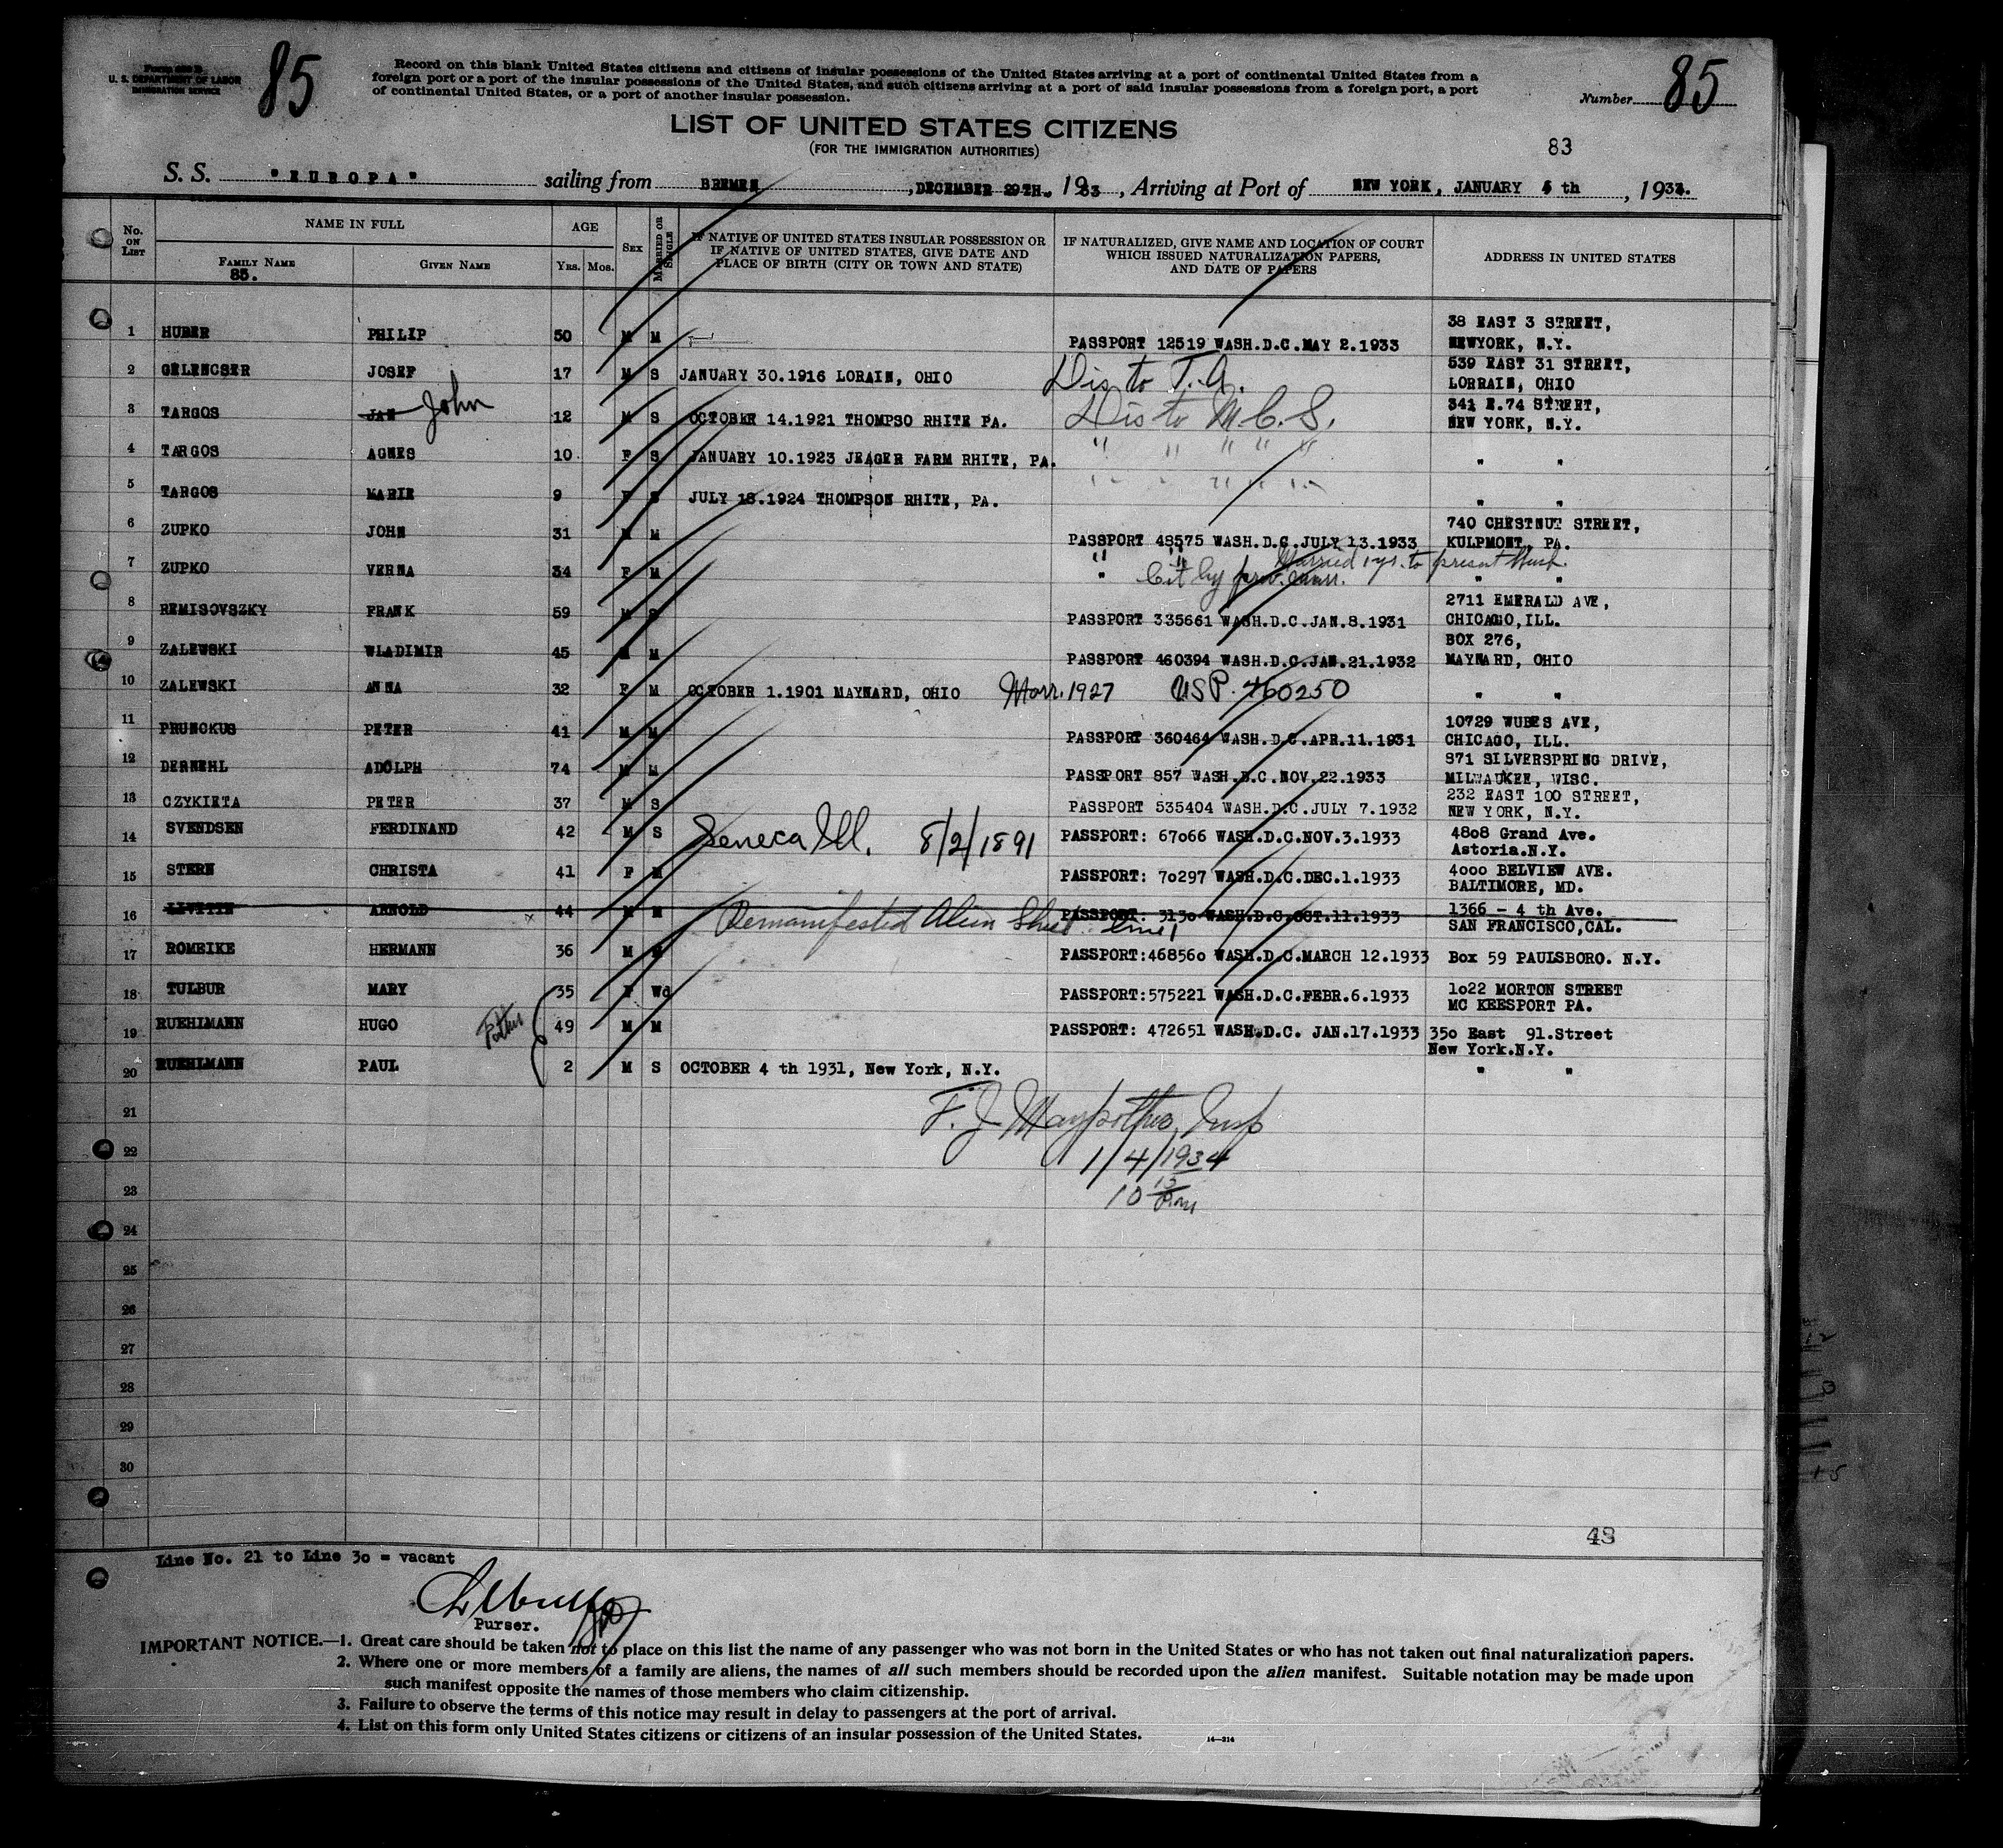 U. S. DEPARTMENT OF LABOR
IMMIGRATION SERVICE
85
Record on this blank United States citizens and citizens of insular possessions of the United States arriving at a port of continental United States from a
foreign port or a port of the insular possessions of the United States, and such citizens arriving at a port of said insular possessions from a foreign port, a port
of continental United States, or a port of another insular possession.
Number 85
LIST OF UNITED STATES CITIZENS
(FOR THE IMMIGRATION AUTHORITIES)
83
S. S. "EUROPA" sailing from BREMEN, DECEMBER 29TH. 1933, Arriving at Port of NEW YORK, JANUARY 4 th, 1934.
No. ON LIST
NAME IN FULL
FAMILY NAME
85.
GIVEN NAME
AGE
YRS. MOS.
SEX
MARRIED OR SINGLE
IF NATIVE OF UNITED STATES INSULAR POSSESSION OR
IF NATIVE OF UNITED STATES, GIVE DATE AND
PLACE OF BIRTH (CITY OR TOWN AND STATE)
IF NATURALIZED, GIVE NAME AND LOCATION OF COURT
WHICH ISSUED NATURALIZATION PAPERS,
AND DATE OF PAPERS
ADDRESS IN UNITED STATES
1 HUBER PHILIP 50 M M PASSPORT 12519 WASH.D.C.MAY 2.1933 38 EAST 3 STREET,
NEWYORK, N.Y.
2 GELENCSER JOSEF 17 M S JANUARY 30.1916 LORAIN, OHIO Dis to T.A. 539 EAST 31 STREET,
LORRAIN, OHIO
3 TARGOS JAN John 12 M S OCTOBER 14.1921 THOMPSO RHITE PA. Dis to M.C.S. 341 E.74 STREET,
NEW YORK, N.Y.
4 TARGOS AGNES 10 F S JANUARY 10.1923 JEAGER FARM RHITE, PA. " " " " " " "
5 TARGOS MARIE 9 F S JULY 18.1924 THOMPSON RHITE, PA. " " " " " " "
6 ZUPKO JOHN 31 M M PASSPORT 48575 WASH.D.C.JULY 13.1933 740 CHESTNUT STREET,
KULPMONT, PA.
7 ZUPKO VERNA 34 F M " " Cit by prev. marr. Married 1 yr. to present Husb. " "
8 REMISOVSZKY FRANK 59 M S PASSPORT 335661 WASH.D.C.JAN.8.1931 2711 EMERALD AVE,
CHICAGO,ILL.
9 ZALEWSKI WLADIMIR 45 M M PASSPORT 460394 WASH.D.C.JAN.21.1932 BOX 276,
MAYNARD, OHIO
10 ZALEWSKI ANNA 32 F M OCTOBER 1.1901 MAYNARD, OHIO Marr. 1927 USP. 460250 " "
11 PRUNCKUS PETER 41 M M PASSPORT 360464 WASH.D.C.APR.11.1931 10729 WUBES AVE,
CHICAGO, ILL.
12 DERNEHL ADOLPH 74 M M PASSPORT 857 WASH.D.C.NOV.22.1933 871 SILVERSPRING DRIVE,
MILWAUKEE, WISC.
13 CZYKIETA PETER 37 M S PASSPORT 535404 WASH.D.C.JULY 7.1932 232 EAST 100 STREET,
NEW YORK, N.Y.
14 SVENDSEN FERDINAND 42 M S Seneca Ill. 8/2/1891 PASSPORT: 67066 WASH.D.C.NOV.3.1933 4808 Grand Ave.
Astoria.N.Y.
15 STERN CHRISTA 41 F M PASSPORT: 70297 WASH.D.C.DEC.1.1933 4000 BELVIEW AVE.
BALTIMORE, MD.
16 ARNOLD x 44 M M Remanifested Alien Sheet line 1 PASSPORT: 3130 WASH.D.C.OCT.11.1933 1366 - 4 th Ave.
SAN FRANCISCO,CAL.
17 ROMEIKE HERMANN 36 M PASSPORT:468560 WASH.D.C.MARCH 12.1933 Box 59 PAULSBORO. N.Y.
18 TULBUR MARY 35 F Wd PASSPORT:575221 WASH.D.C.FEBR.6.1933 1022 MORTON STREET
MC KEESPORT PA.
19 RUEHLMANN HUGO Father 49 M M PASSPORT: 472651 WASH.D.C. JAN.17.1933 350 East 91.Street
New York.N.Y.
20 RUEHLMANN PAUL 2 M S OCTOBER 4 th 1931, New York, N.Y. " "
21
F. J. Insp
22
1/4/1934
23
10 15 am
24
25
26
27
28
29
30
48
Line No. 21 to Line 30 = vacant
Purser.
IMPORTANT NOTICE.—1. Great care should be taken not to place on this list the name of any passenger who was not born in the United States or who has not taken out final naturalization papers.
2. Where one or more members of a family are aliens, the names of all such members should be recorded upon the alien manifest. Suitable notation may be made upon
such manifest opposite the names of those members who claim citizenship.
3. Failure to observe the terms of this notice may result in delay to passengers at the port of arrival.
4. List on this form only United States citizens or citizens of an insular possession of the United States.
14—214